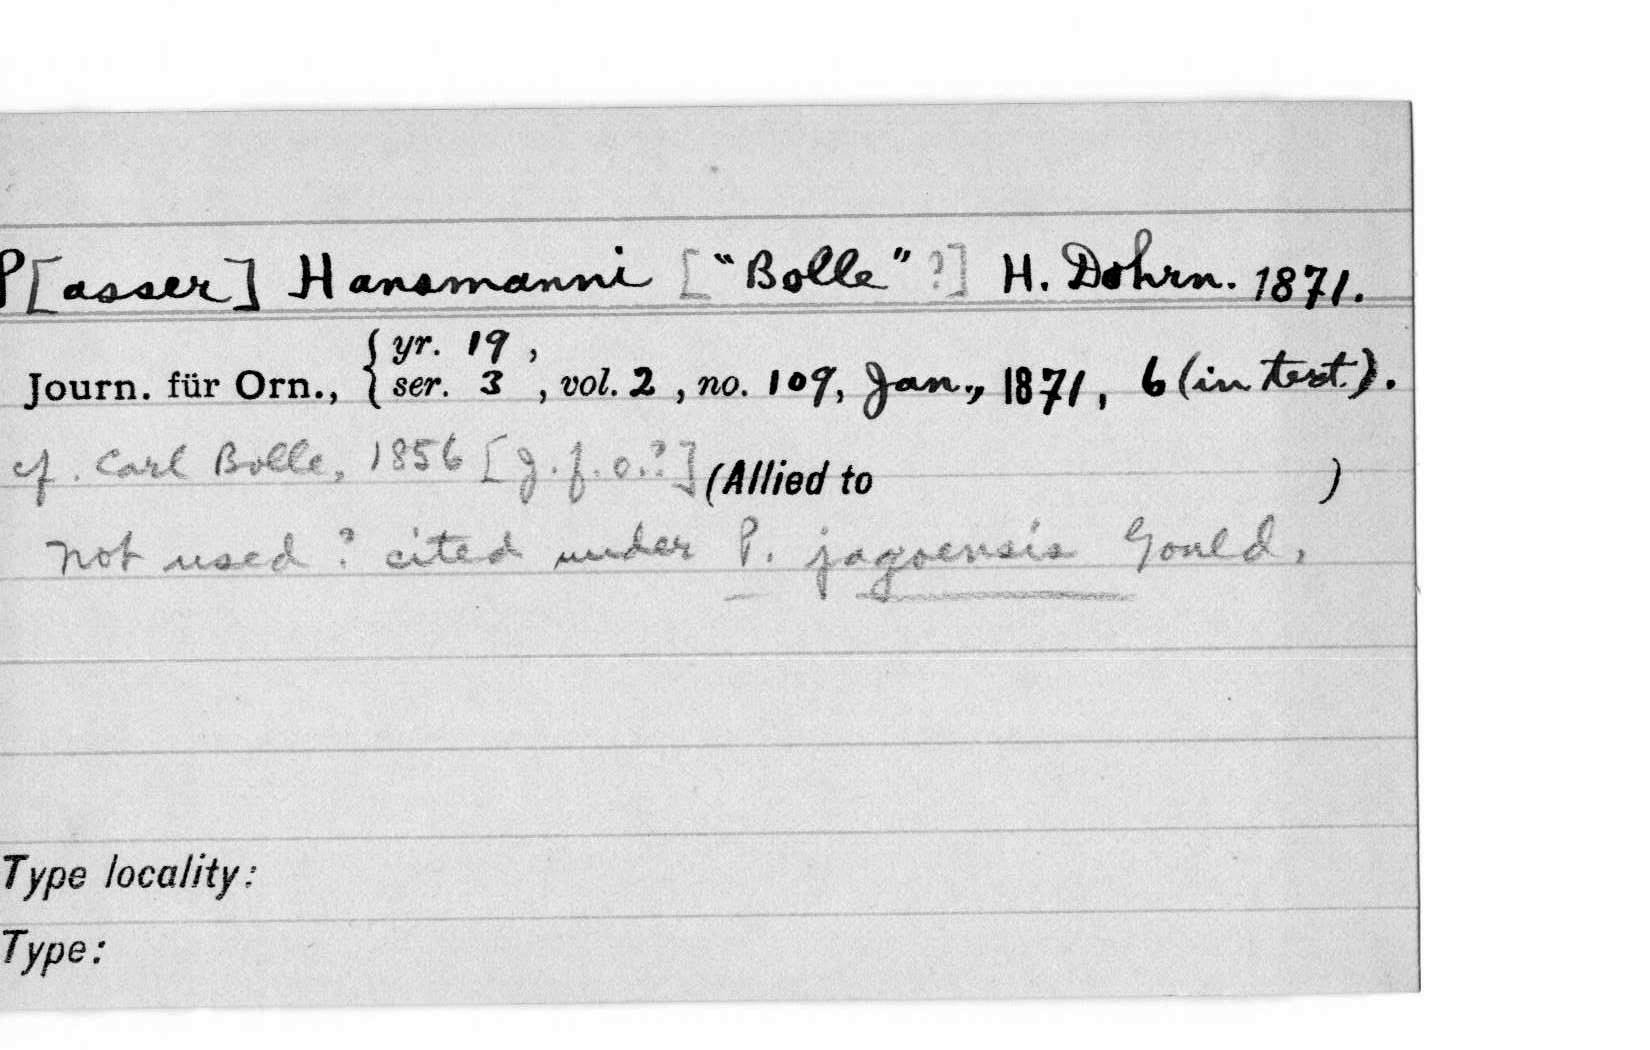 P[asser] Hansmanni ["Bolle" ?] H. Dohrn. 1871.
Journ. für Orn., { yr. 19 ,
ser. 3 , vol. 2 , no. 109, Jan., 1871, 6 (in text).
cf. Carl Bolle, 1856 [J.f.o.?] (Allied to )
not used? cited under P. jagoensis Gould,
Type locality:
Type: